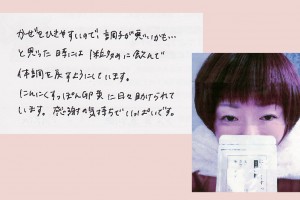 かぜをひきやすいので、調子が悪いかも…
と思った時には1粒多めに飲んで
体調を戻すようにしています。
にんにくすっぽん卵黄に日々助けられて
います。感謝の気持ちでいっぱいです。